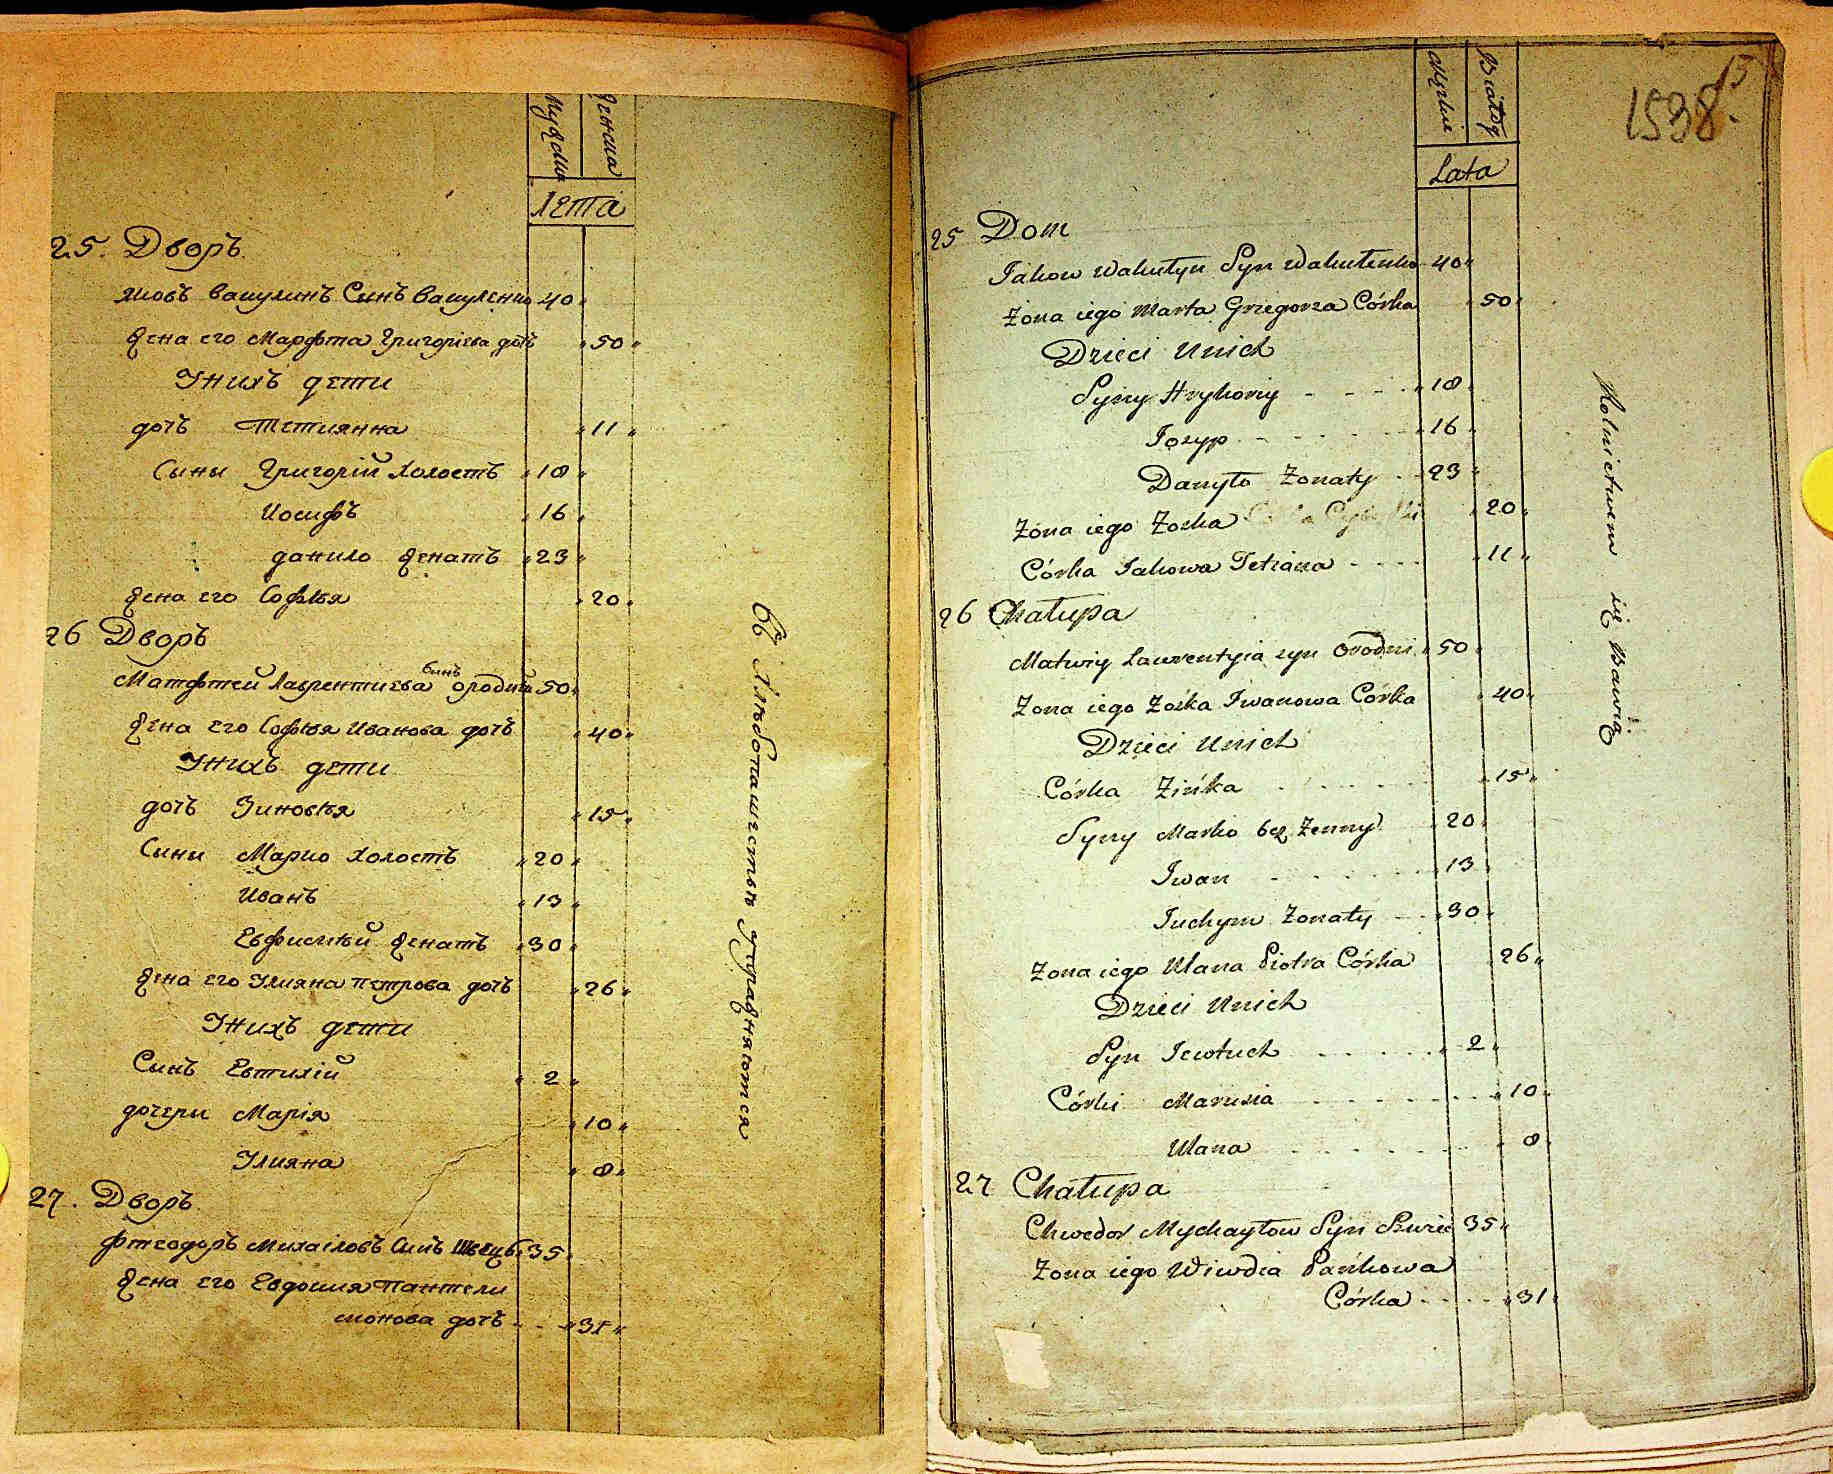 Мужска
Женска
Лета
25. Дворъ
Яковъ Вакулинъ Синъ Вакуленко 40
Жена его Марфта Григориева дочъ 50
Унихъ дети
дочъ Тетиянна 11
Сыны Григорій Холостъ 18
Иосифъ 16
данило Женатъ 23
Жена его Софія 20
26 Дворъ
Матфтей Лаврентиева синъ ородній 50
Жена его Софія Иванова дочъ 40
Унихъ дети
дочъ Зиновія 15
Сыни Марко Холостъ 20
Иванъ 13
Евфисий Женатъ 30
Жена его Улияна Петрова дочъ 26
Унихъ дети
Синъ Евтихій 2
дочери Марія 10
Улияна 8
27. Дворъ
Фтеодоръ Михаіловъ Синъ Швецъ 35
Жена его Евдокия Пантели
монова дочъ - - 31
Въ Хлебопашестве упражняются
Męzkie
Białogł
15
1538.
Lata
25 Dom
Jakow Wakutyn Syn Wakutenko 40
Żona iego Marta Griegorza Córka 50
Dzieci Unich
Syny Hryhoriy - - - 18
Jozyp - - - - 16
Danyło Żonaty - 23
Żona iego Zoska 20
Córka Jakowa Tetiana - - - - 11
26 Chałupa
Matwiy Laurentyia syn Orodni 50
Żona iego Zośka Iwanowa Córka 40
Dzieci Unich
Córka Zińka - - - - 15
Syny Marko bez Żenny 20
Iwan - - - - 13
Iuchym Żonaty - - 30
Żona iego Ulana Piotra Córka 26
Dzieci Unich
Syn Jewtuch - - - - 2
Córki Marusia - - - - 10
Ulana - - - - 8
27 Chałupa
Chwedor Mychayłow Syn Szwiec 35
Żona iego Wiwdia Pańkowa
Córka - - - - 31
Rolnictwem się Bawią